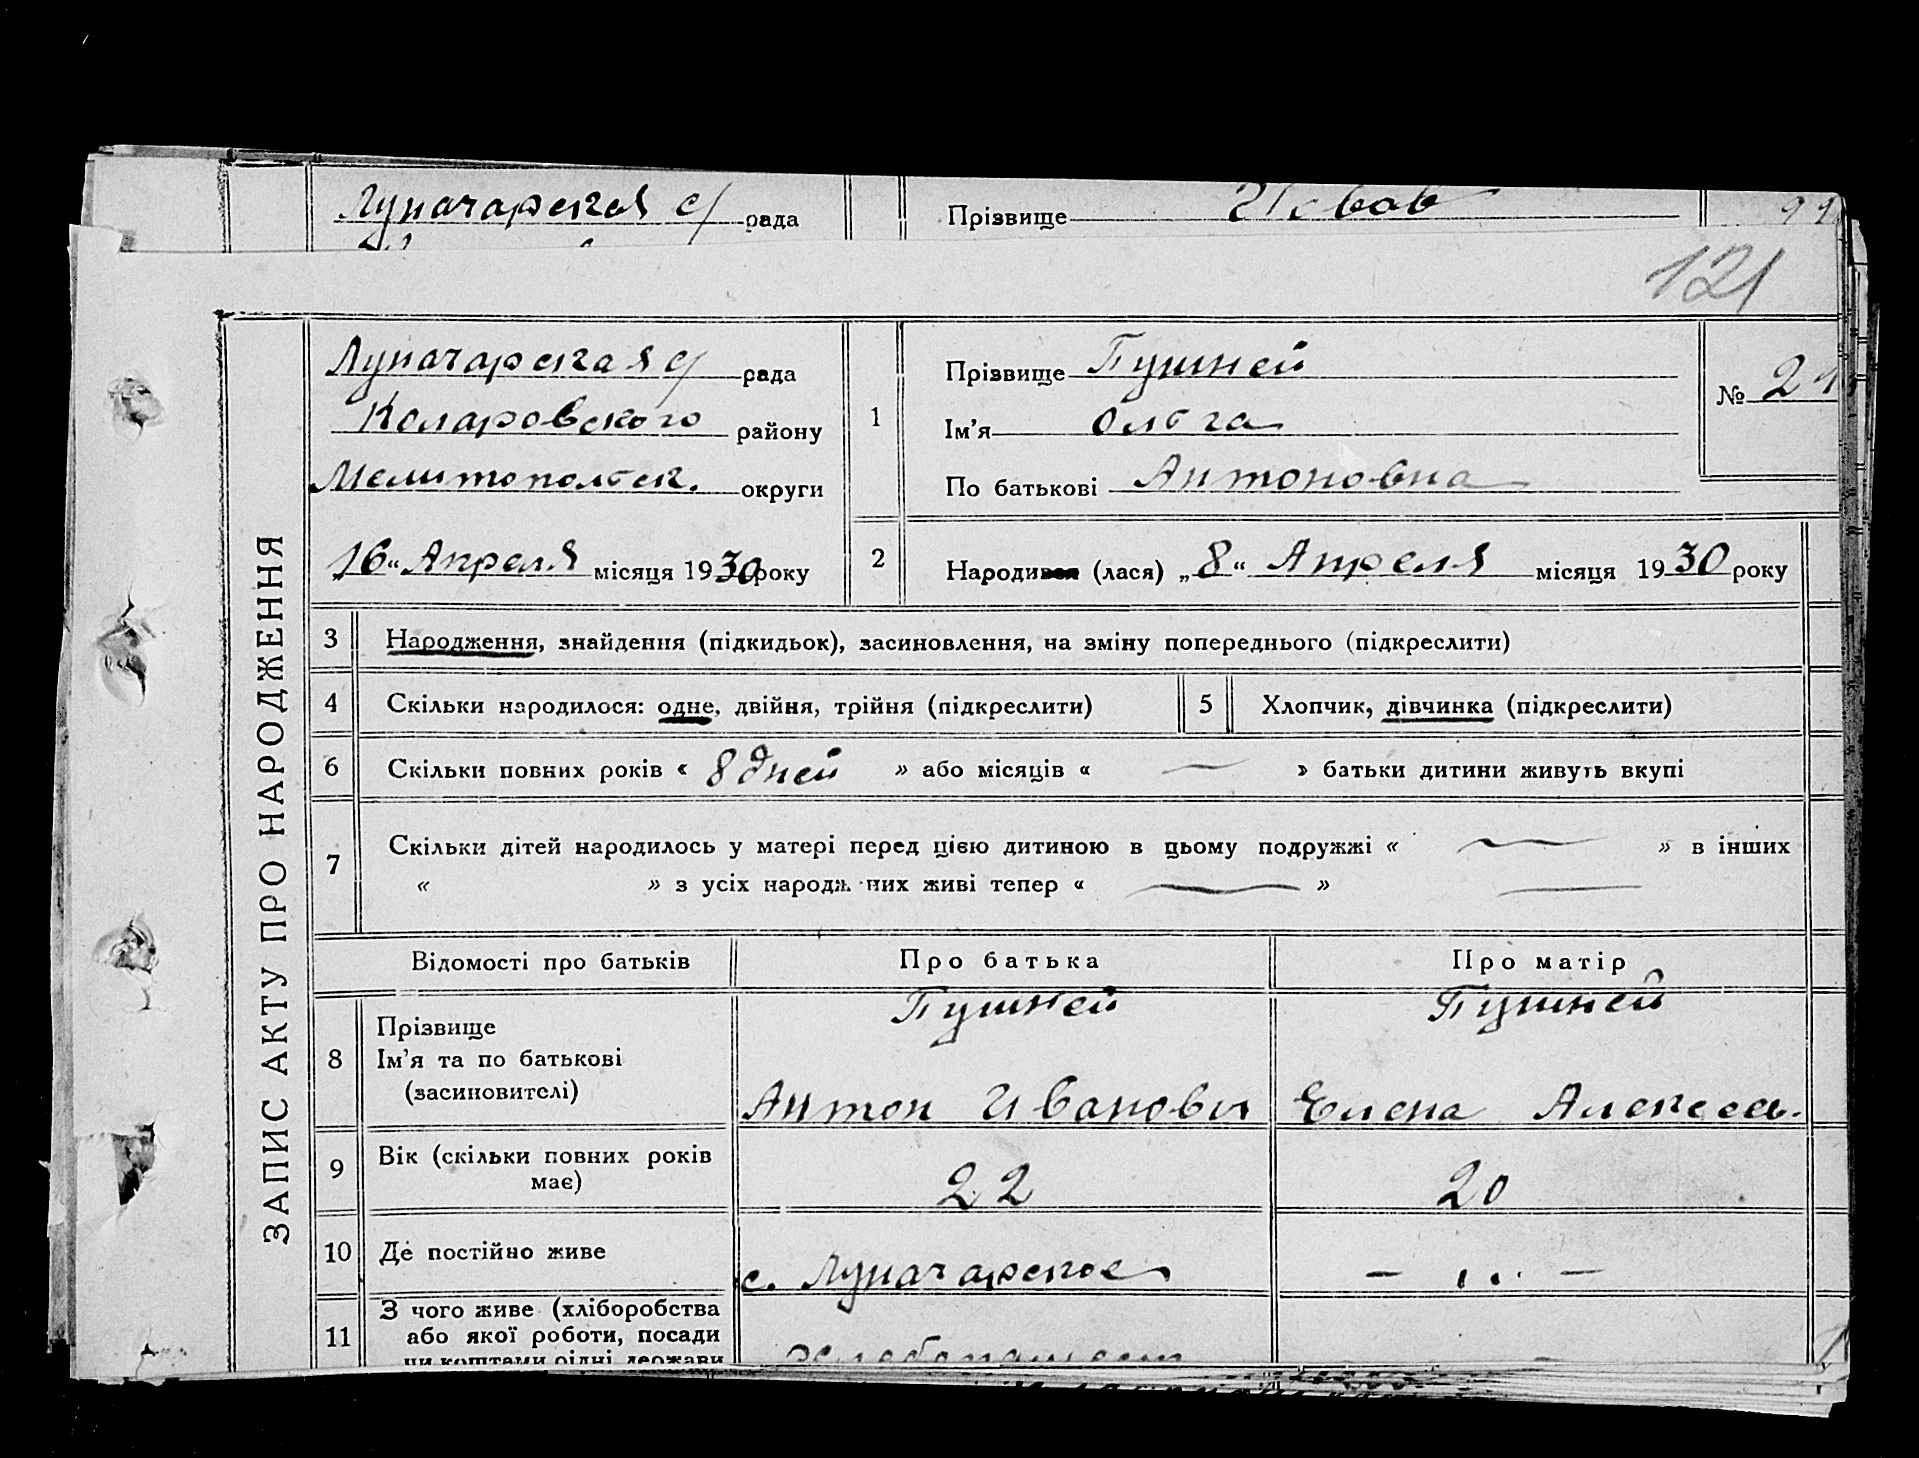 Луначарская с/ рада
Прізвище
99
121
ЗАПИС АКТУ ПРО НАРОДЖЕННЯ
Луначарская с/ рада
Коларовского району
Мелитопольск. округи
16 „ Апреля місяця 1930 року
1
Прізвище Пушней
Ім’я Ольга
По батькові Антоновна
№ 21
2
Народився (лася) „8“ Апреля місяця 1930 року
3 Народження, знайдення (підкидьок), засиновлення, на зміну попереднього (підкреслити)
4 Скільки народилося: одне, двійня, трійня (підкреслити)
5 Хлопчик, дівчинка (підкреслити)
6 Скільки повних років « 8 дней » або місяців « — » батьки дитини живуть вкупі
7 Скільки дітей народилось у матері перед цією дитиною в цьому подружжі « — » в інших
« » з усіх народж них живі тепер « — » —
Відомості про батьків
Про батька
Про матір
8 Прізвище
Ім’я та по батькові
(засиновителі)
Пушней
Антон Иванович
Пушней
Елена Алексеев.
9 Вік (скільки повних років
має)
22
20
10 Де постійно живе
с. Луначарское
— „ . —
11 З чого живе (хліборобства
або якої роботи, посади
чи коштами рідні, держави